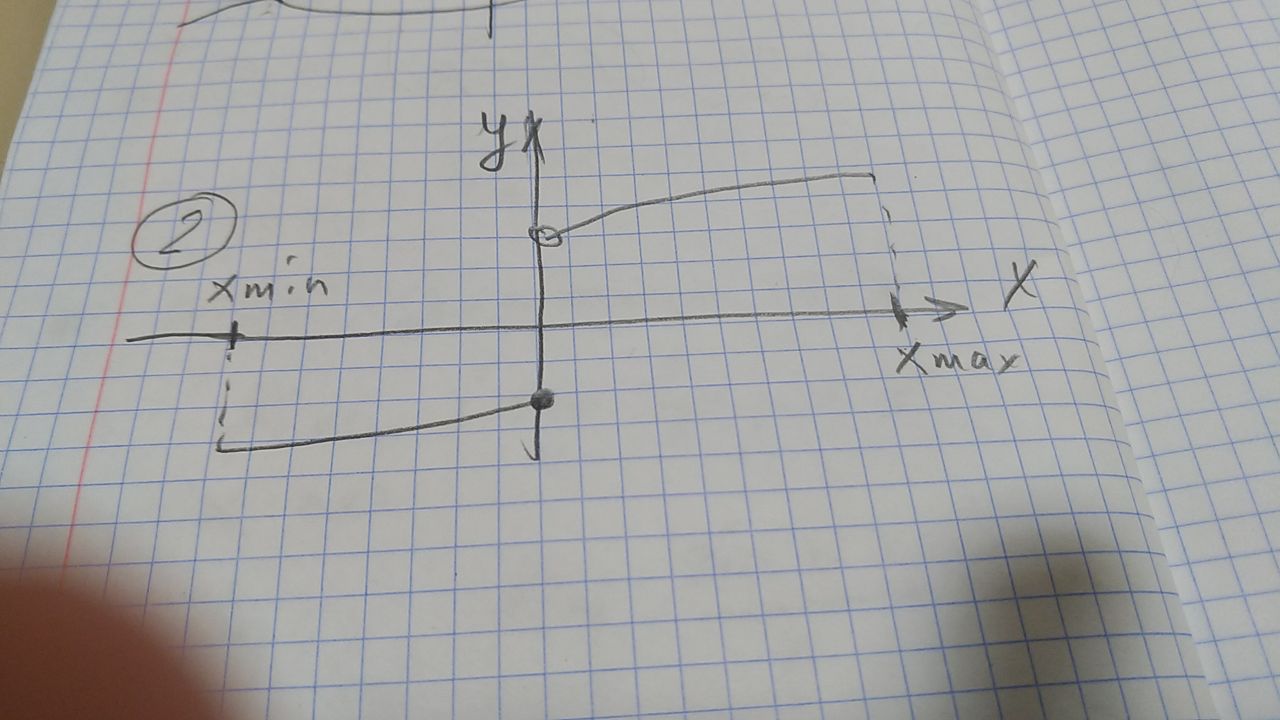 y
2
xmin
X
xmax